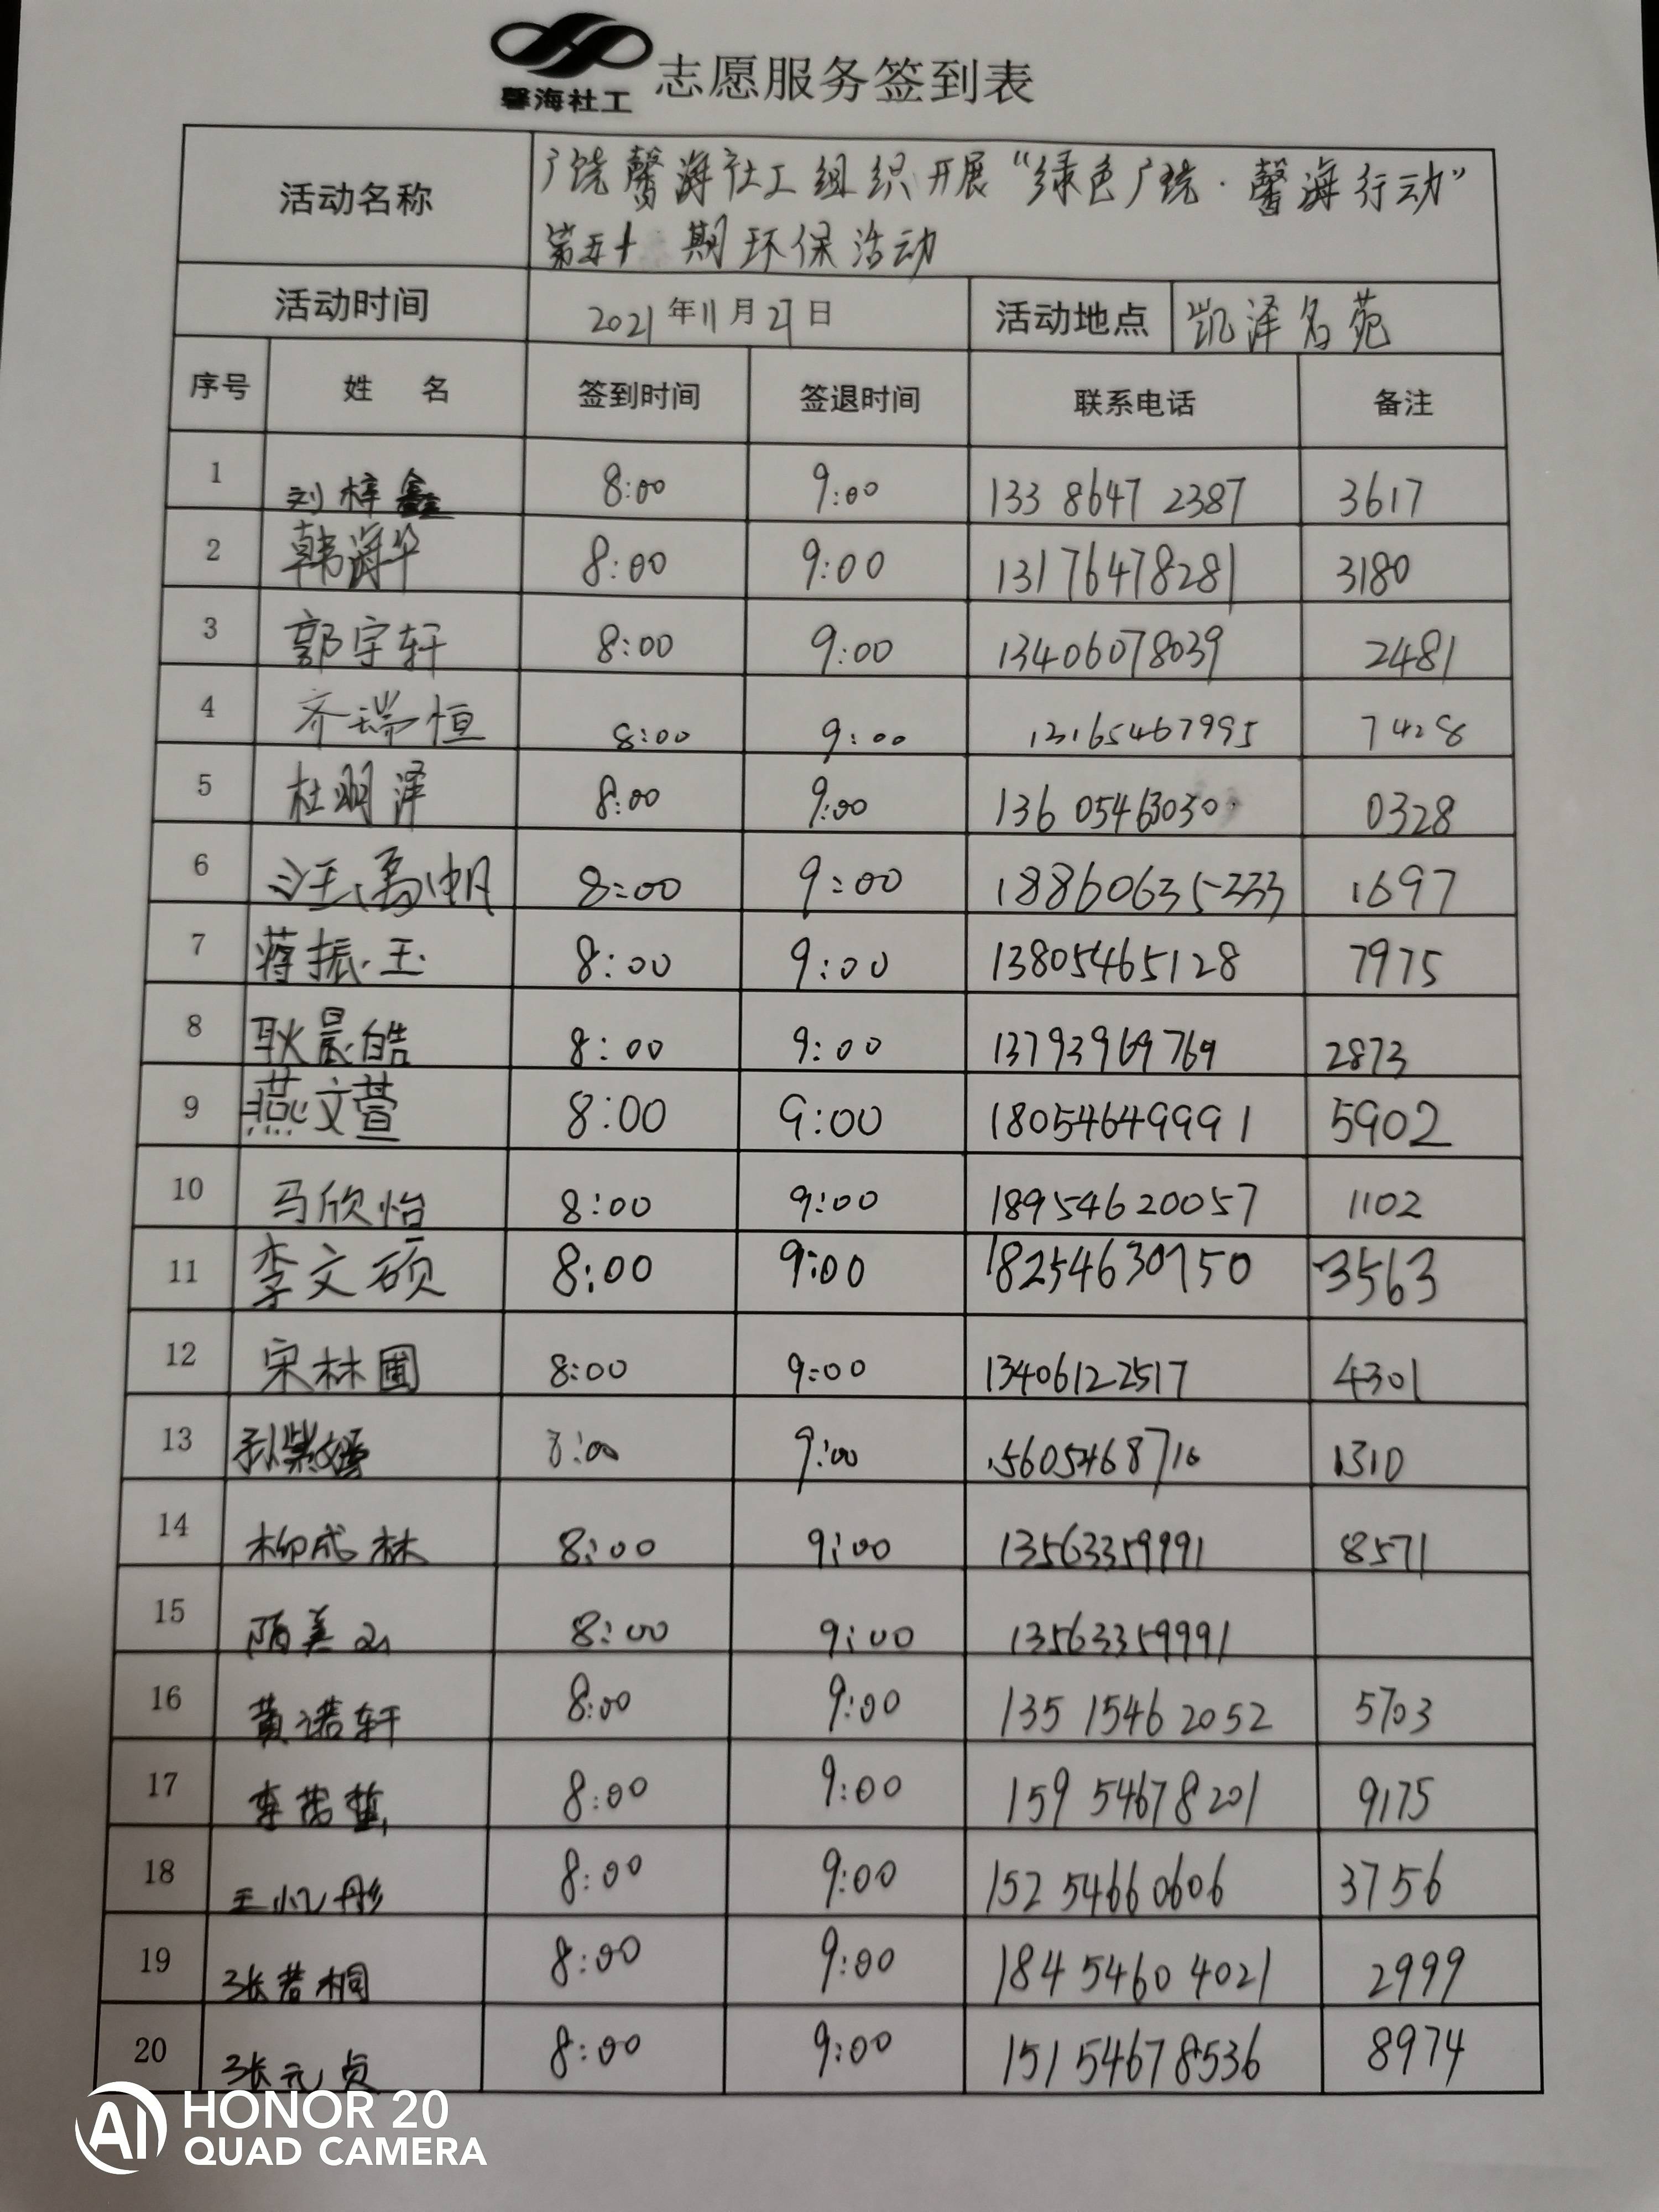 馨海社工
志愿服务签到表
活动名称 广饶馨海社工组织开展“绿色广饶·馨海行动”
第五十 期环保活动
活动时间 2021年11月27日 活动地点 凯泽名苑
序号 姓 名 签到时间 签退时间 联系电话 备注
1 刘梓鑫 8:00 9:00 133 8647 2387 3617
2 韩 华 8:00 9:00 13176478281 3180
3 郭宇轩 8:00 9:00 13406078039 2481
4 齐瑞恒 8:00 9:00 13165467995 7428
5 杜明泽 8:00 9:00 136 05463030 0328
6 汪禹帆 8:00 9:00 18860635233 1697
7 蒋振玉 8:00 9:00 13805465128 7975
8 耿晨皓 8:00 9:00 13793969769 2873
9 燕文萱 8:00 9:00 18054649991 5902
10 马欣怡 8:00 9:00 18954620057 1102
11 李文硕 8:00 9:00 18254630750 3563
12 宋林圃 8:00 9:00 13406122517 4301
13 孙紫 8:00 9:00 15605468716 1310
14 柳成林 8:00 9:00 13563359991 8571
15 美 8:00 9:00 13563359991
16 黄诺轩 8:00 9:00 135 1546 2052 5703
17 李 8:00 9:00 159 54678201 9175
18 王忆彤 8:00 9:00 152 5466 0606 3756
19 张若桐 8:00 9:00 184 5460 4021 2999
20 张元贞 8:00 9:00 151 54678536 8974
HONOR 20
QUAD CAMERA